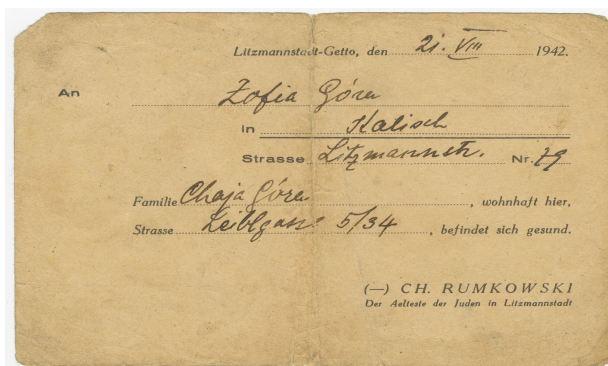 Litzmannstadt-Getto, den 21. VIII 1942.
An Zofia Góra
in Kalisch
Strasse Litzmannstr. Nr. 79
Familie Chaja Góra, wohnhaft hier,
Strasse Leiblgasse 5/34, befindet sich gesund.
(—) CH. RUMKOWSKI
Der Aelteste der Juden in Litzmannstadt